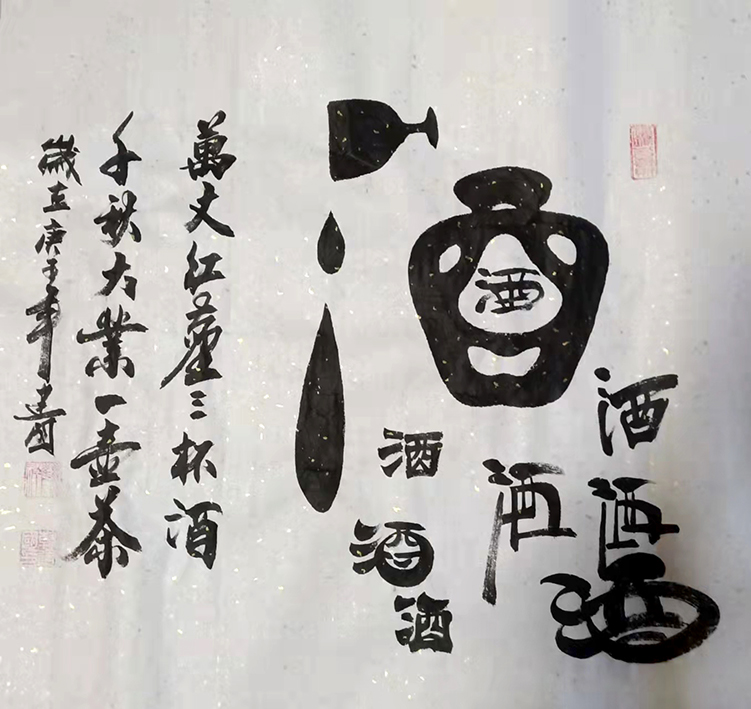 酒
酒
酒
酒
酒
酒
酒
酒
萬丈红塵三杯酒
千秋大業一壺茶
歲在庚子年